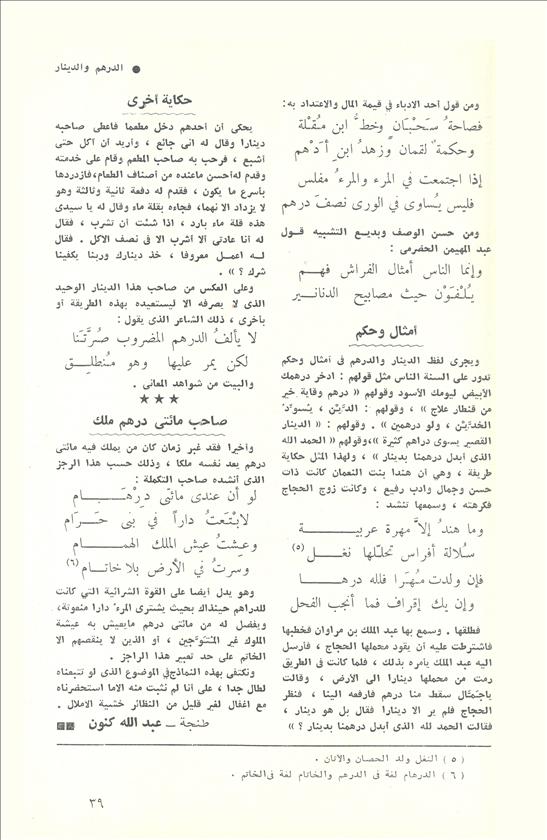 ● الدرهم والدينار
ومن قول أحد الادباء في قيمة المال والاعتداد به :
فصاحة سَحْبَانٍ وخطُّ ابن مُقْلة
وحكمة لقمان وزهدُ ابنِ أدْهم
إذا اجتمعت في المرء والمرءُ مفلس
فليس يُساوى في الورى نصفَ درهم
ومن حسن الوصف وبديع التشبيه قول
عبد المهيمن الحضرمى :
وإنما الناس أمثال الفراش فهم
يُلْفَوْن حيث مصابيح الدنانير
أمثال وحكم
ويجرى لفظ الدينار والدرهم فى أمثال وحكم
تدور على السنة الناس مثل قولهم : ادخر درهمك
الأبيض ليومك الأسود وقولهم « درهم وقاية خير
من قنطار علاج » ، وقولهم : الدَّيْن ، يُسوِّدُ
الخدَّيْن ، ولو درهمين » . وقولهم : « الدينار
القصير يسوى دراهم كثيرة »،وقولهم « الحمد الله
الذى أبدل درهمنا بدينار » ، ولهذا المثل حكاية
طريفة ، وهى ان هندا بنت النعمان كانت ذات
حسن وجمال وادب رفيع ، وكانت زوج الحجاج
فكرهته ، وسمعها تنشد :
وما هندُ إلاَّ مهرة عربية
سُلالة أفراس تحللها نغل (٥)
فإن ولدت مُهْرا فلله درها
وإن يك إقراف فما أنجب الفحل
فطلقها . وسمع بها عبد الملك بن مراوان فخطبها
فاشترطت عليه أن يقود محملها الحجاج ، فأرسل
اليه عبد الملك يأمره بذلك ، فلما كانت فى الطريق
رمت من محملها دينارا الى الأرض ، وقالت
ياجَمَّال سقط منا درهم فارفعه الينا ، فنظر
الحجاج فلم ير الا دينارا فقال بل هو دينار ،
فقالت الحمد لله الذى أبدل درهمنا بدينار ؟ »
حكاية أخرى
يحكى أن أحدهم دخل مطعما فأعطى صاحبه
دينارا وقال له انى جائع ، وأريد أن آكل حتى
أشبع ، فرحب به صاحب المطعم وقام على خدمته
وقدم له أحسن ماعنده من أصناف الطعام،فازدردها
بأسرع ما يكون ، فقدم له دفعة ثانية وثالثة وهو
لا يزداد الا نهما، فجاءه بقلة ماء وقال له يا سيدى
هذه قلة ماء بارد ، اذا شئت أن تشرب ، فقال
له أنا عادتى ألا أشرب الا فى نصف الاكل . فقال
له اعمل معروفا ، خذ دينارك وربنا يكفينا
شرك ؟ » .
وعلى العكس من صاحب هذا الدينار الوحيد
الذى لا يصرفه الا ليستعيده بهذه الطريقة أو
بأخرى ، ذلك الشاعر الذى يقول :
لا يألفُ الدرهم المضروب صُرَّتَنا
لكن يمر عليها وهو مُنطلِق
والبيت من شواهد المعانى .
★ ★ ★
صاحب مائتى درهم ملك
وأخيرا فقد غبر زمان كان من يملك فيه مائتى
درهم يعد نفسه ملكا ، وذلك حسب هذا الرجز
الذى أنشده صاحب التكملة :
لو أن عندى مائتى دِرْهَام
لابْتَعتُ داراً في بنى حَرَام
وعِشتُ عيش الملك الهمام
وسرتُ في الأرض بلا خاتام (٦)
وهو يدل أيضا على القوة الشرائية التى كانت
للدراهم حينذاك بحيث يشترى المرءُ دارا منعوتة،
ويفضل له من مائتى درهم مايعيش به عيشة
الملوك غير المُتَوَّجين ، أو الذين لا ينقصهم الا
الخاتم على حد تعبير هذا الراجز .
ونكتفى بهذه النماذج فى الموضوع الذى لو تتبعناه
لطال جدا ، على أنا لم نثبت منه الاما استحضرناه
مع اغفال لغير قليل من النظائر خشية الاملال .
طنجة ــ عبد الله كنون
( ٥ ) النغل ولد الحصان والأتان .
( ٦ ) الدرهام لغة فى الدرهم والخاتام لغة فى الخاتم .
٣٩